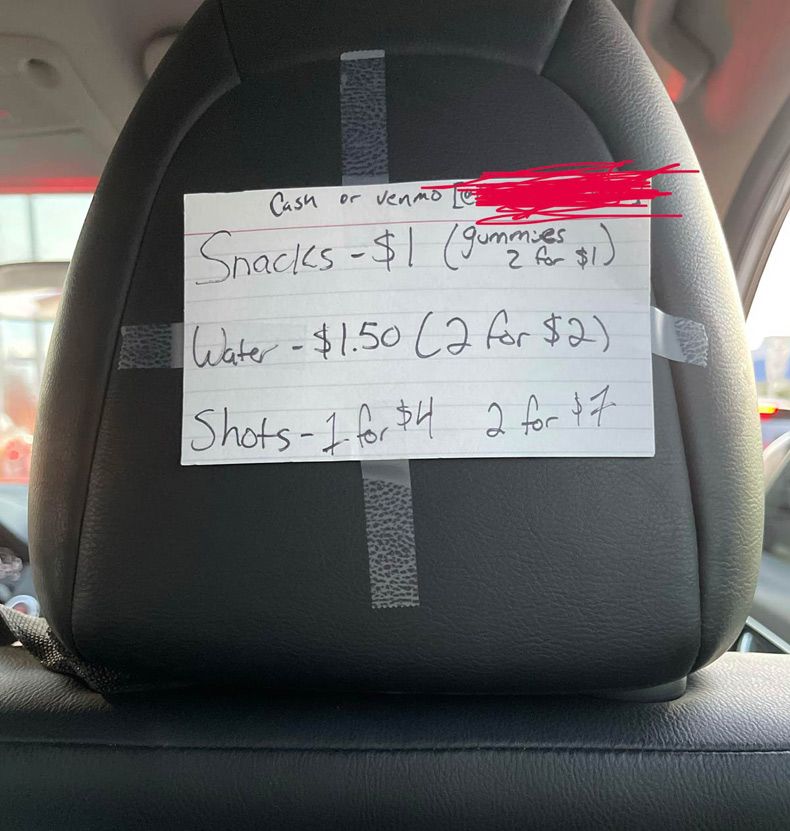 Cash or venmo [@
Snacks - $1 (gummies
2 for $1)
Water - $1.50 (2 for $2)
Shots - 1 for $4 2 for $7